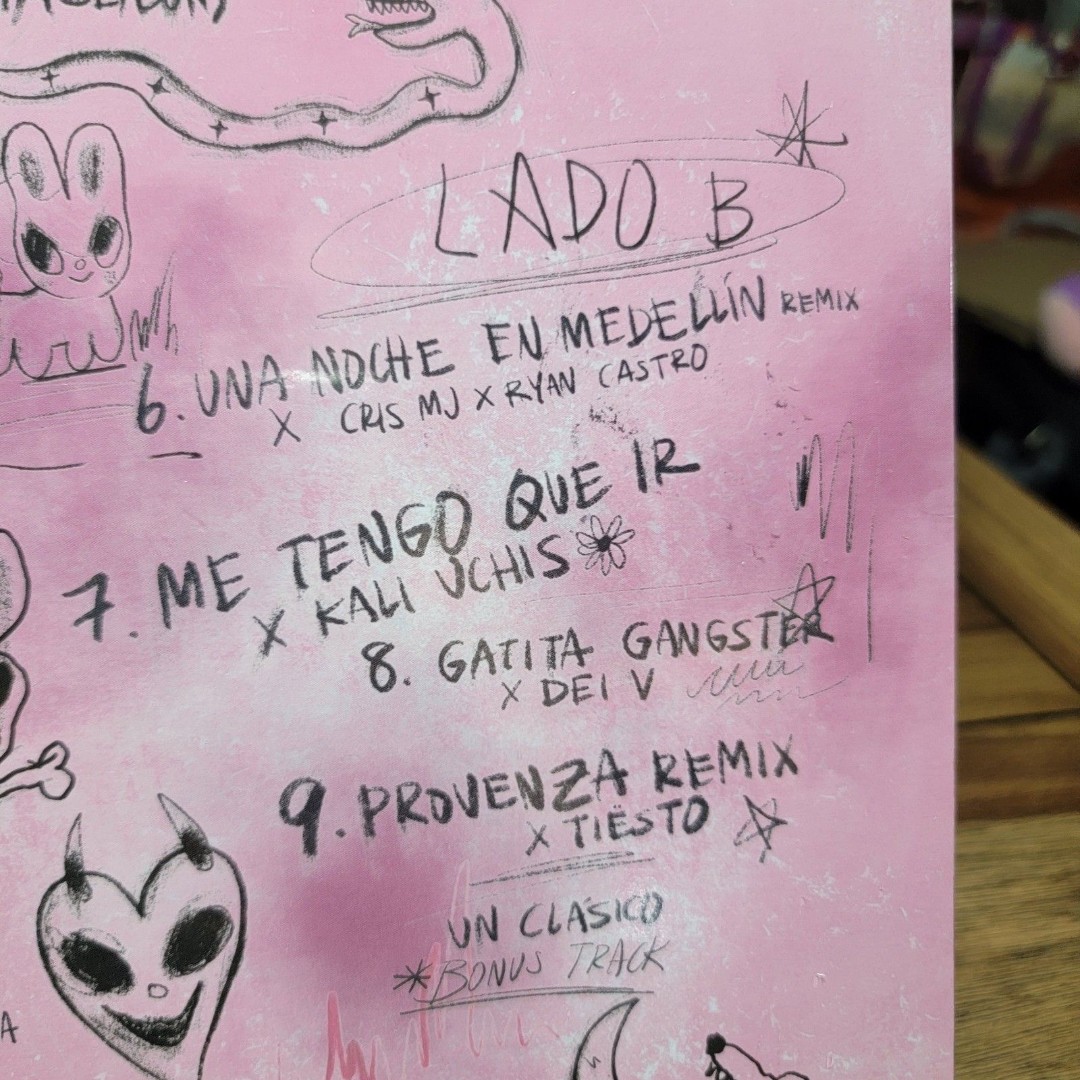 LADO B
6. UNA NOCHE EN MEDELLÍN REMIX
X CRIS MJ X RYAN CASTRO
7. ME TENGO QUE IR
X KALI UCHIS
8. GATITA GANGSTER
X DEI V
9. PROVENZA REMIX
X TIËSTO
UN CLÁSICO
*BONUS TRACK
A